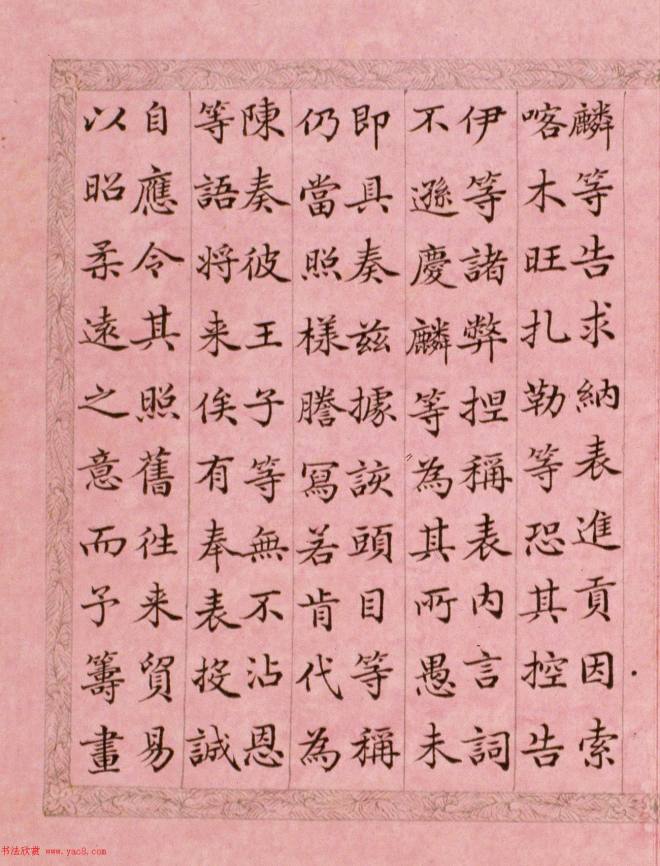 麟等告求納表進貢因索
喀木旺扎勒等恐其控告
伊等諸弊捏稱表内言詞
不遜慶麟等為其所愚未
即具奏兹據該頭目等稱
仍當照樣謄寫若肯代為
陳奏彼王子等無不沾恩
等語将来俟有奉表投誠
自應令其照舊徃来貿易
以昭柔遠之意而予籌畫
书法欣赏 www.yac8.com